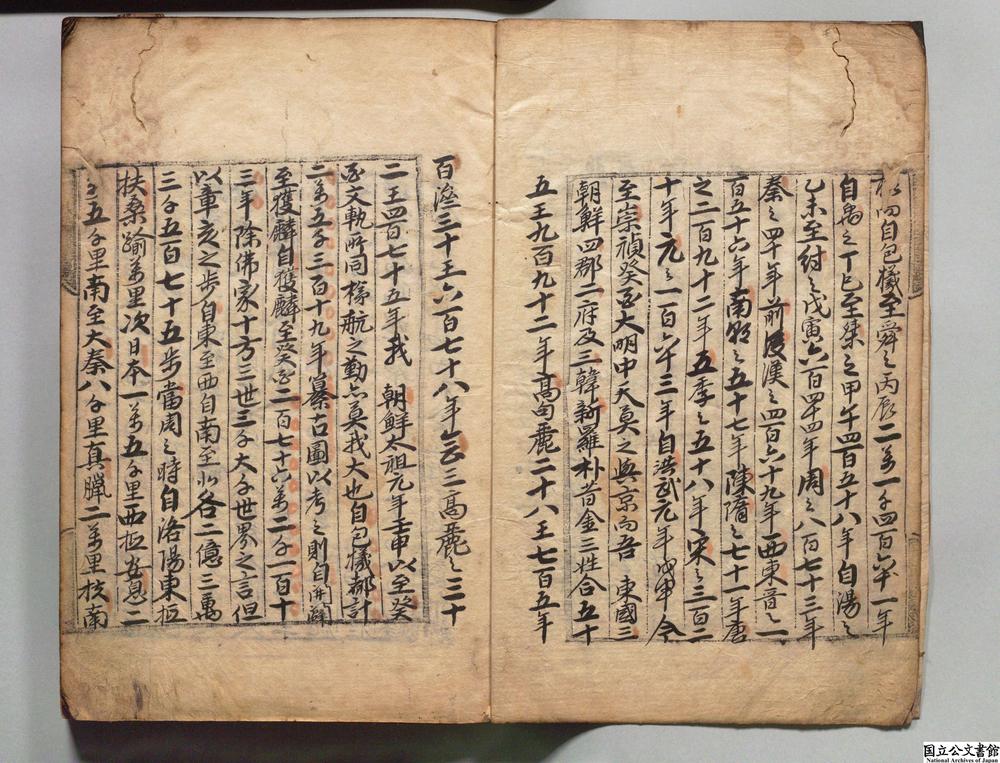 四自包犧至舜之丙辰二萬一千四百六十一年
自禹之丁巳至桀之甲午四百五十八年自湯之
乙未至紂之戊寅六百四十四年周之八百七十三年
秦之四十年前後漢之四百六十九年西東晉之一
百五十六年南朝之五十七年陳隋之七十一年唐
之二百九十二年五季之五十八年宋之三百二
十年元之一百六十三年自洪武元年戊申今
至崇禎癸酉大明中天奠之與京而吾 東國三
朝鮮四郡二府及三韓新羅朴昔金三姓合五十
五王九百九十二年高句麗二十八王七百五年
百濟三十王六百七十八年弁三高麗之三十
二王四百七十五年我 朝鮮太祖元年壬申以至癸
酉文軌所同梯航之勤亦莫我大也自包犧都計
二萬五千三百十九年纂古圖以考之則自開闢
至獲麟自獲麟至癸酉二百七十六萬二千一百十
三年除佛家十方三世三千大千世界之言但
以章亥之步自東至西自南至北各二億三萬
三千五百七十五步當周之時自洛陽東極
扶桑踰萬里次日本一萬五千里西極安息二
五千里南至大秦八千里真臘二萬里扶南
国立公文書館
National Archives of Japan